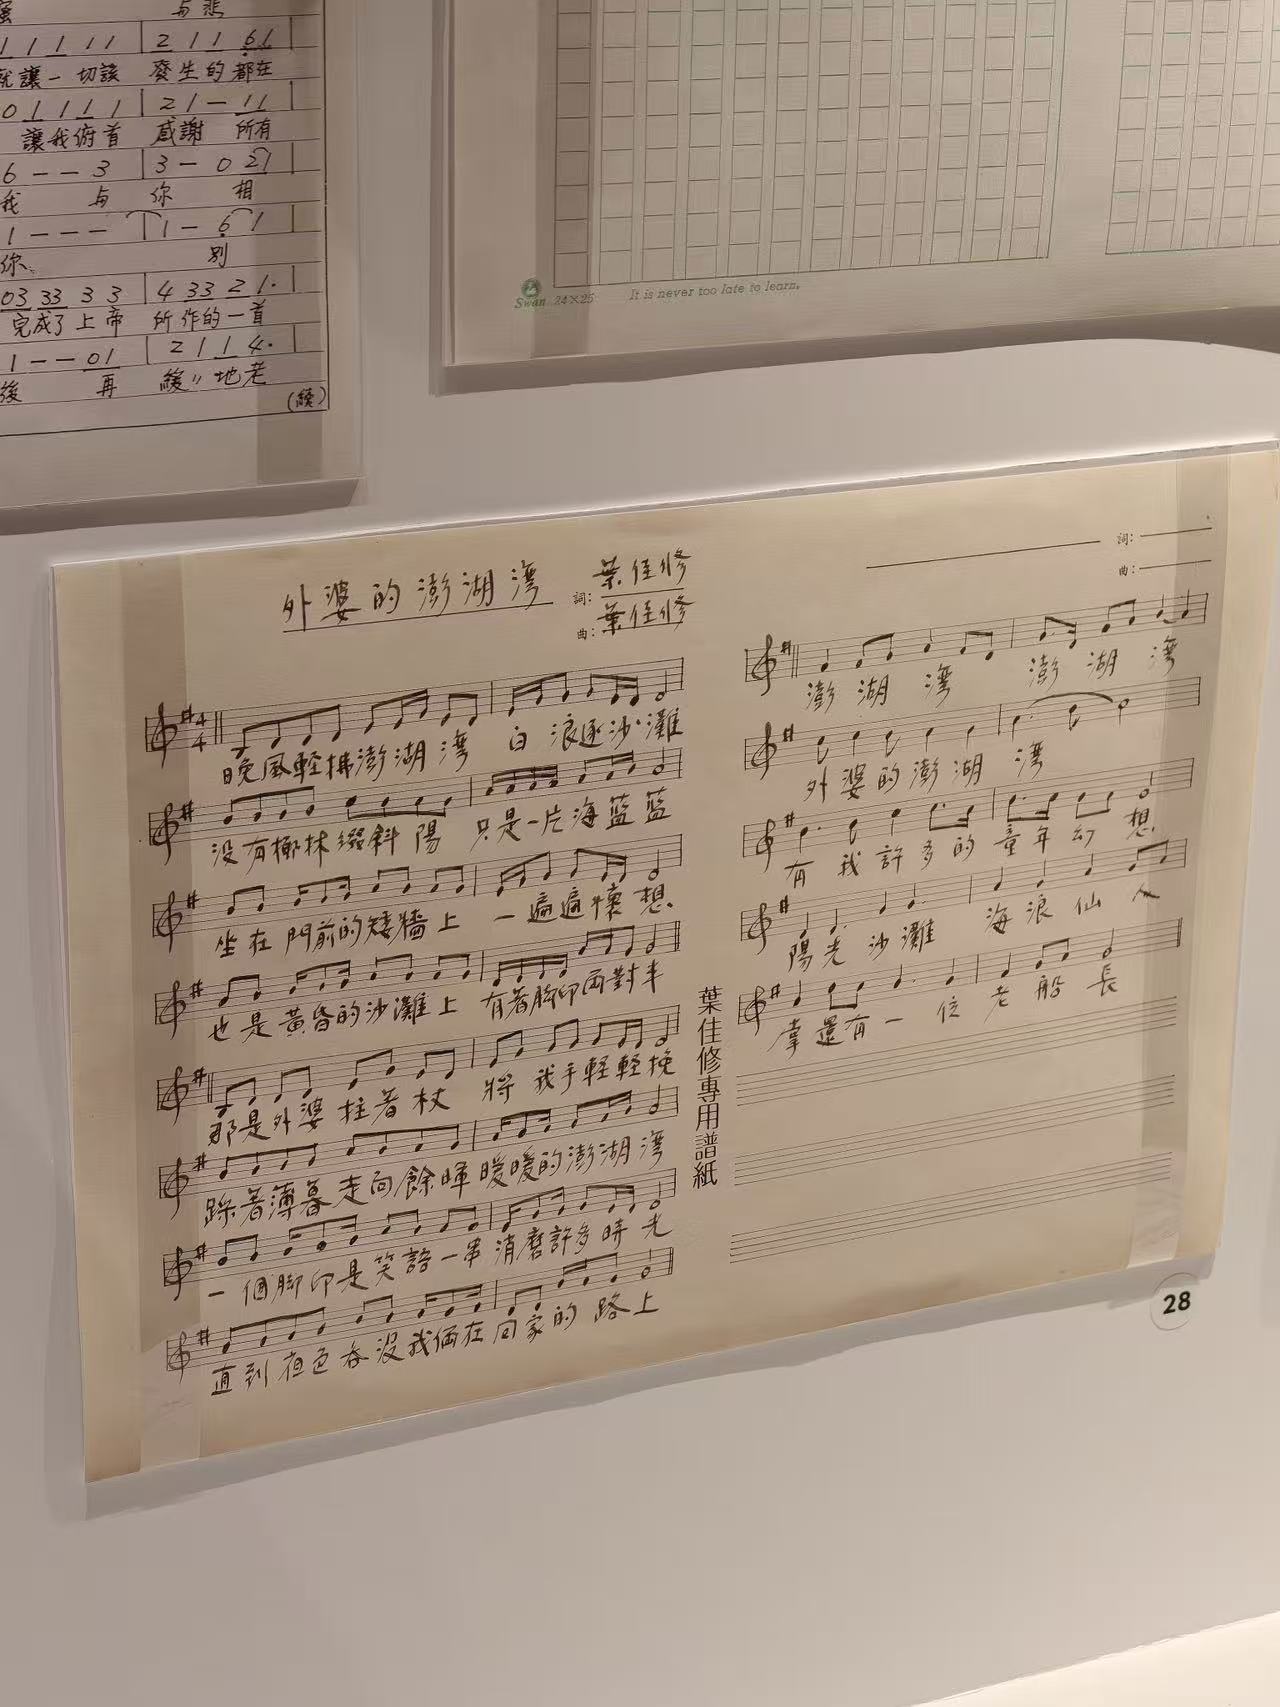 与悲
1 1 1 1 1 | 2 1 1 6 1 |
就讓一切該 發生的都在
0 1 1 1 1 | 2 1 — 1 1 |
讓我俯首 感謝 所有
6 — — 3 | 3 — 0 2 1
我 与 你 相
1 — — — | 1 — 6 1
你 別
03 33 3 3 | 4 33 2 1.
完成了上帝 所作的一首
1 — — 01 | 2 1 1 4.
後 再 緩〃地老
(續)
Swan 24×25 It is never too late to learn.
外婆的澎湖灣
詞: 葉佳修
曲: 葉佳修
4/4
晚風輕拂澎湖灣 白浪逐沙灘
沒有椰林綴斜陽 只是一片海藍藍
坐在門前的矮牆上 一遍遍懷想
也是黃昏的沙灘上 有著腳印兩對半
那是外婆拄著杖 將我手輕輕挽
踩著薄暮走向餘暉 暖暖的澎湖灣
一個腳印是笑語一串 消磨許多時光
直到夜色吞沒我倆在 回家的路上
葉佳修專用譜紙
詞:
曲:
澎湖灣 澎湖灣
外婆的澎湖灣
有我許多的童年幻想
陽光沙灘 海浪仙人
掌還有一位老船長
28